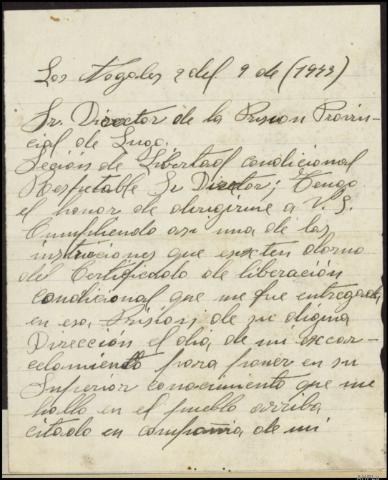 Los Nogales 2 del 9 de (1943)
Sr. Director de la Prision Provin-
cial de Lugo.
Seción de Libertad condicional
Respetable Sr Director; Tengo
el honor de dirigirme a V. S.
Cumpliendo asi una de las
instruciones que al dorso
del Certificado de liberación
condicional que me fue entregado,
en esa, Prision, de su digna
Dirección el dia, de mi excar-
celamiento para poner en su
Superior conocimiento que me
hallo en el pueblo arriba
citado en compañia de mi